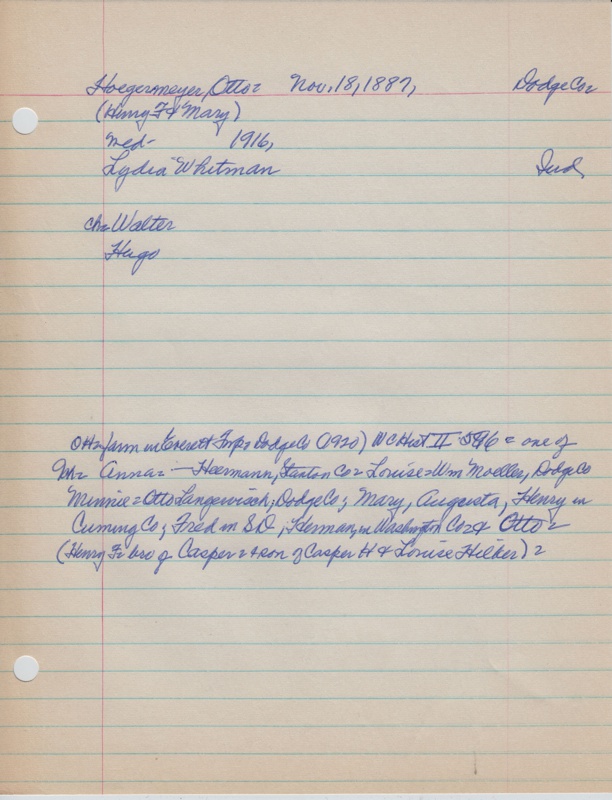 Hoegermeyer, Otto= Nov. 18, 1887, Dodge Co=
(Henry F & Mary)
med- 1916,
Lydia Whitman Ind,
ch= Walter
Hugo
OH= farm in Everett Twp= Dodge Co (1920) WC Hist II 596 = one of
= Anna = — Heermann, Stanton Co = Louise = Wm Moeller, Dodge Co
Minnie = Otto Langewisch, Dodge Co; Mary, Augusta, Henry in
Cuming Co; Fred in SD; Herman, in Washington Co = & Otto =
(Henry F= bro of Casper = & son of Casper H & Louise Hilker) =